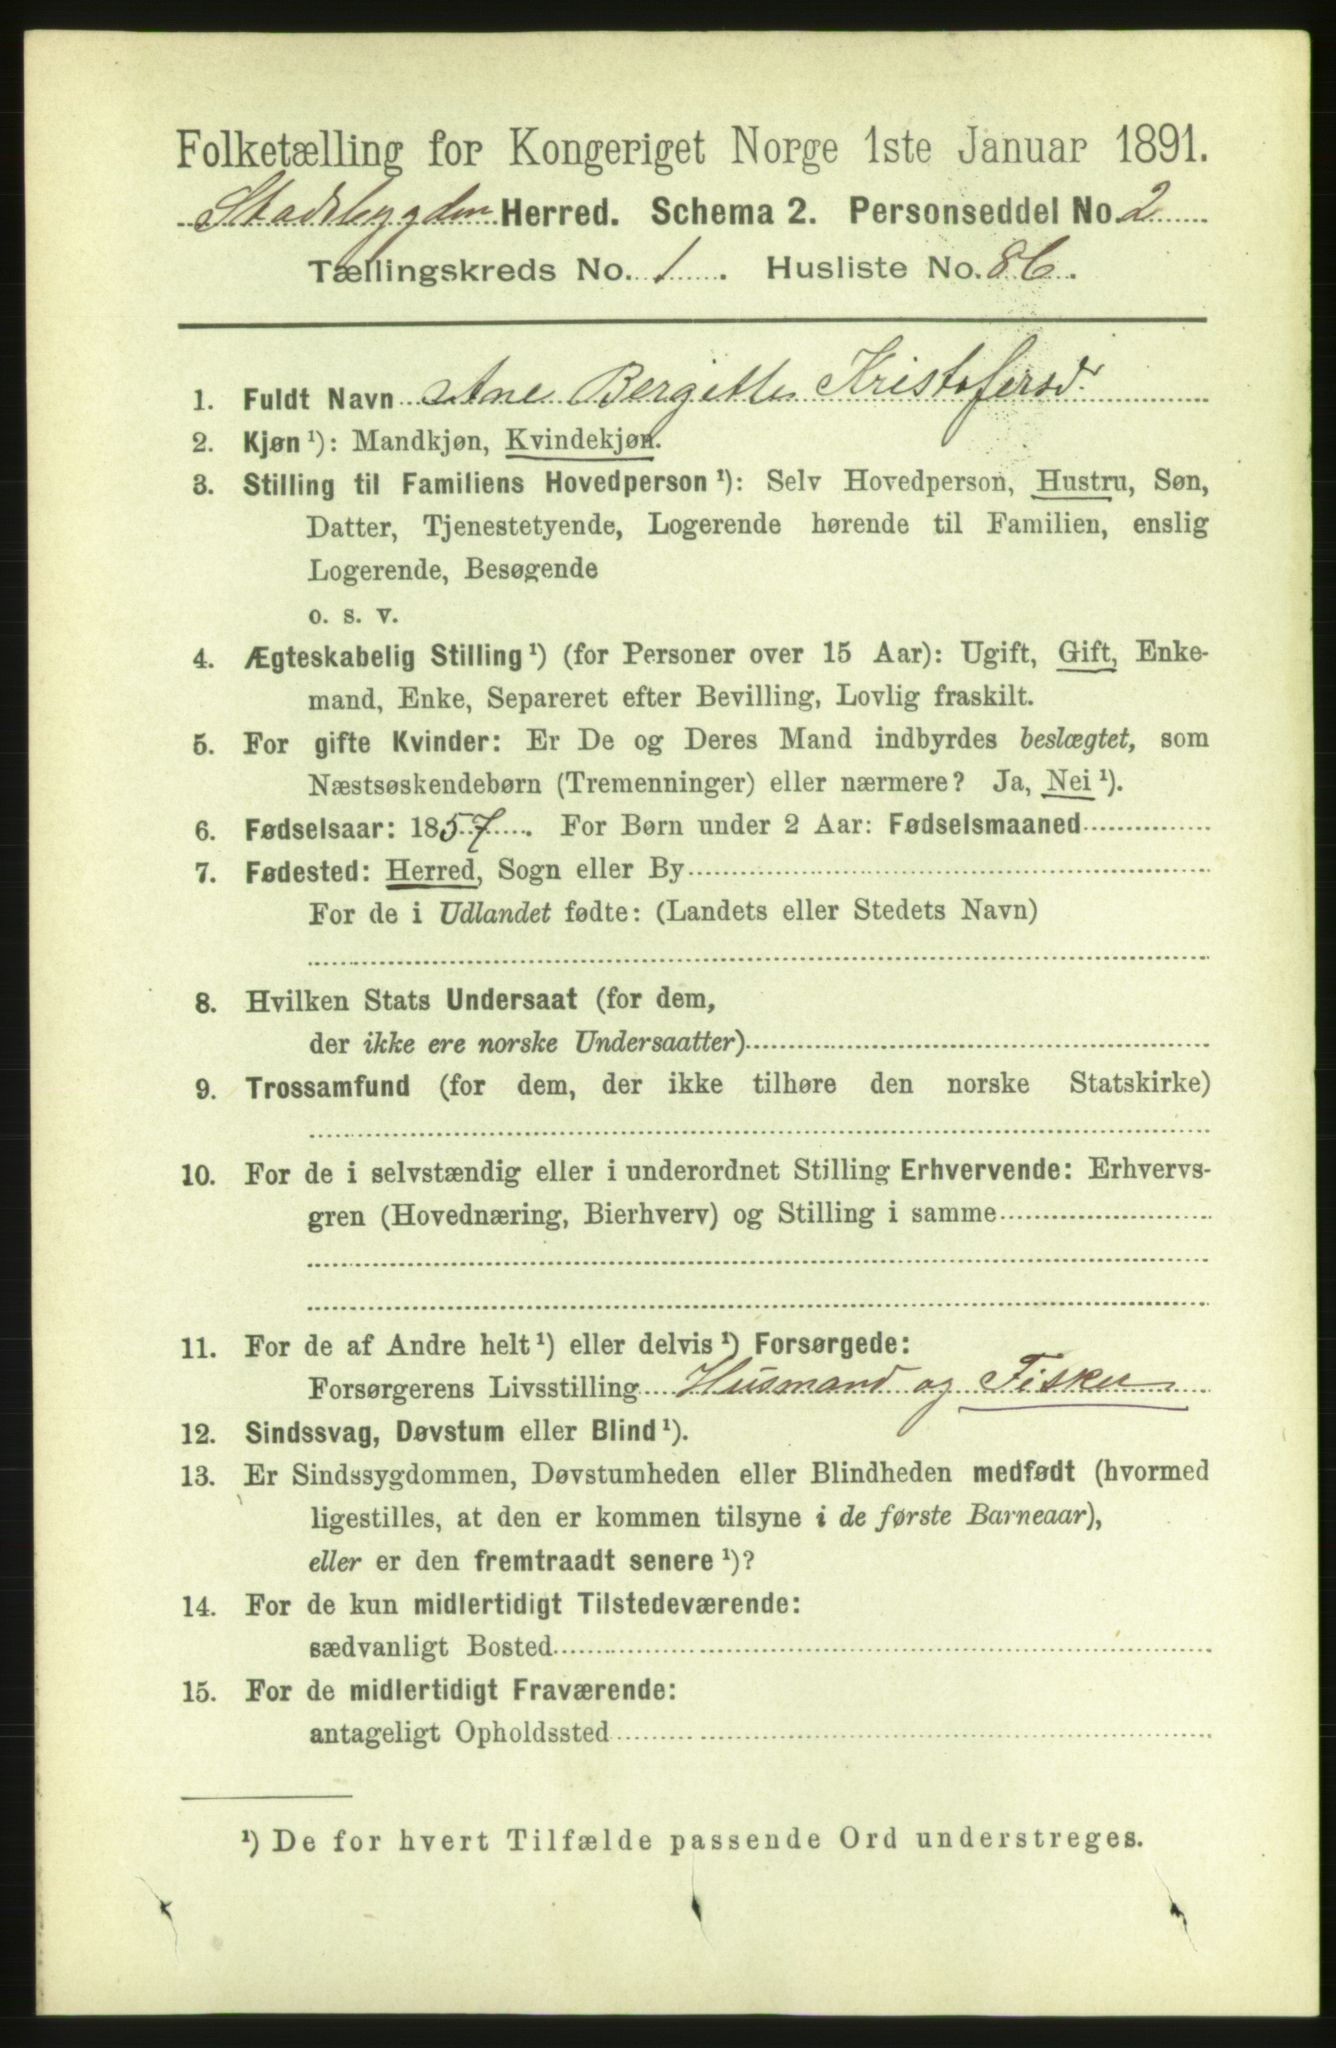 Folketælling for Kongeriget Norge 1ste Januar 1891.
Stadsbygden Herred. Schema 2. Personseddel No. 2
Tællingskreds No. 1. Husliste No. 86.
1. Fuldt Navn Ane Bergitte Kristofersd.
2. Kjøn ¹): Mandkjøn, Kvindekjøn.
3. Stilling til Familiens Hovedperson ¹): Selv Hovedperson, Hustru, Søn,
Datter, Tjenestetyende, Logerende hørende til Familien, enslig
Logerende, Besøgende
o. s. v.
4. Ægteskabelig Stilling ¹) (for Personer over 15 Aar): Ugift, Gift, Enke-
mand, Enke, Separeret efter Bevilling, Lovlig fraskilt.
5. For gifte Kvinder: Er De og Deres Mand indbyrdes beslægtet, som
Næstsøskendebørn (Tremenninger) eller nærmere? Ja, Nei ¹).
6. Fødselsaar: 1857. For Børn under 2 Aar: Fødselsmaaned
7. Fødested: Herred, Sogn eller By
For de i Udlandet fødte: (Landets eller Stedets Navn)
8. Hvilken Stats Undersaat (for dem,
der ikke ere norske Undersaatter)
9. Trossamfund (for dem, der ikke tilhøre den norske Statskirke)
10. For de i selvstændig eller i underordnet Stilling Erhvervende: Erhvervs-
gren (Hovednæring, Bierhverv) og Stilling i samme
11. For de af Andre helt ¹) eller delvis ¹) Forsørgede:
Forsørgerens Livsstilling Husmand og Fisker
12. Sindssvag, Døvstum eller Blind ¹).
13. Er Sindssygdommen, Døvstumheden eller Blindheden medfødt (hvormed
ligestilles, at den er kommen tilsyne i de første Barneaar),
eller er den fremtraadt senere ¹)?
14. For de kun midlertidigt Tilstedeværende:
sædvanligt Bosted
15. For de midlertidigt Fraværende:
antageligt Opholdssted
¹) De for hvert Tilfælde passende Ord understreges.